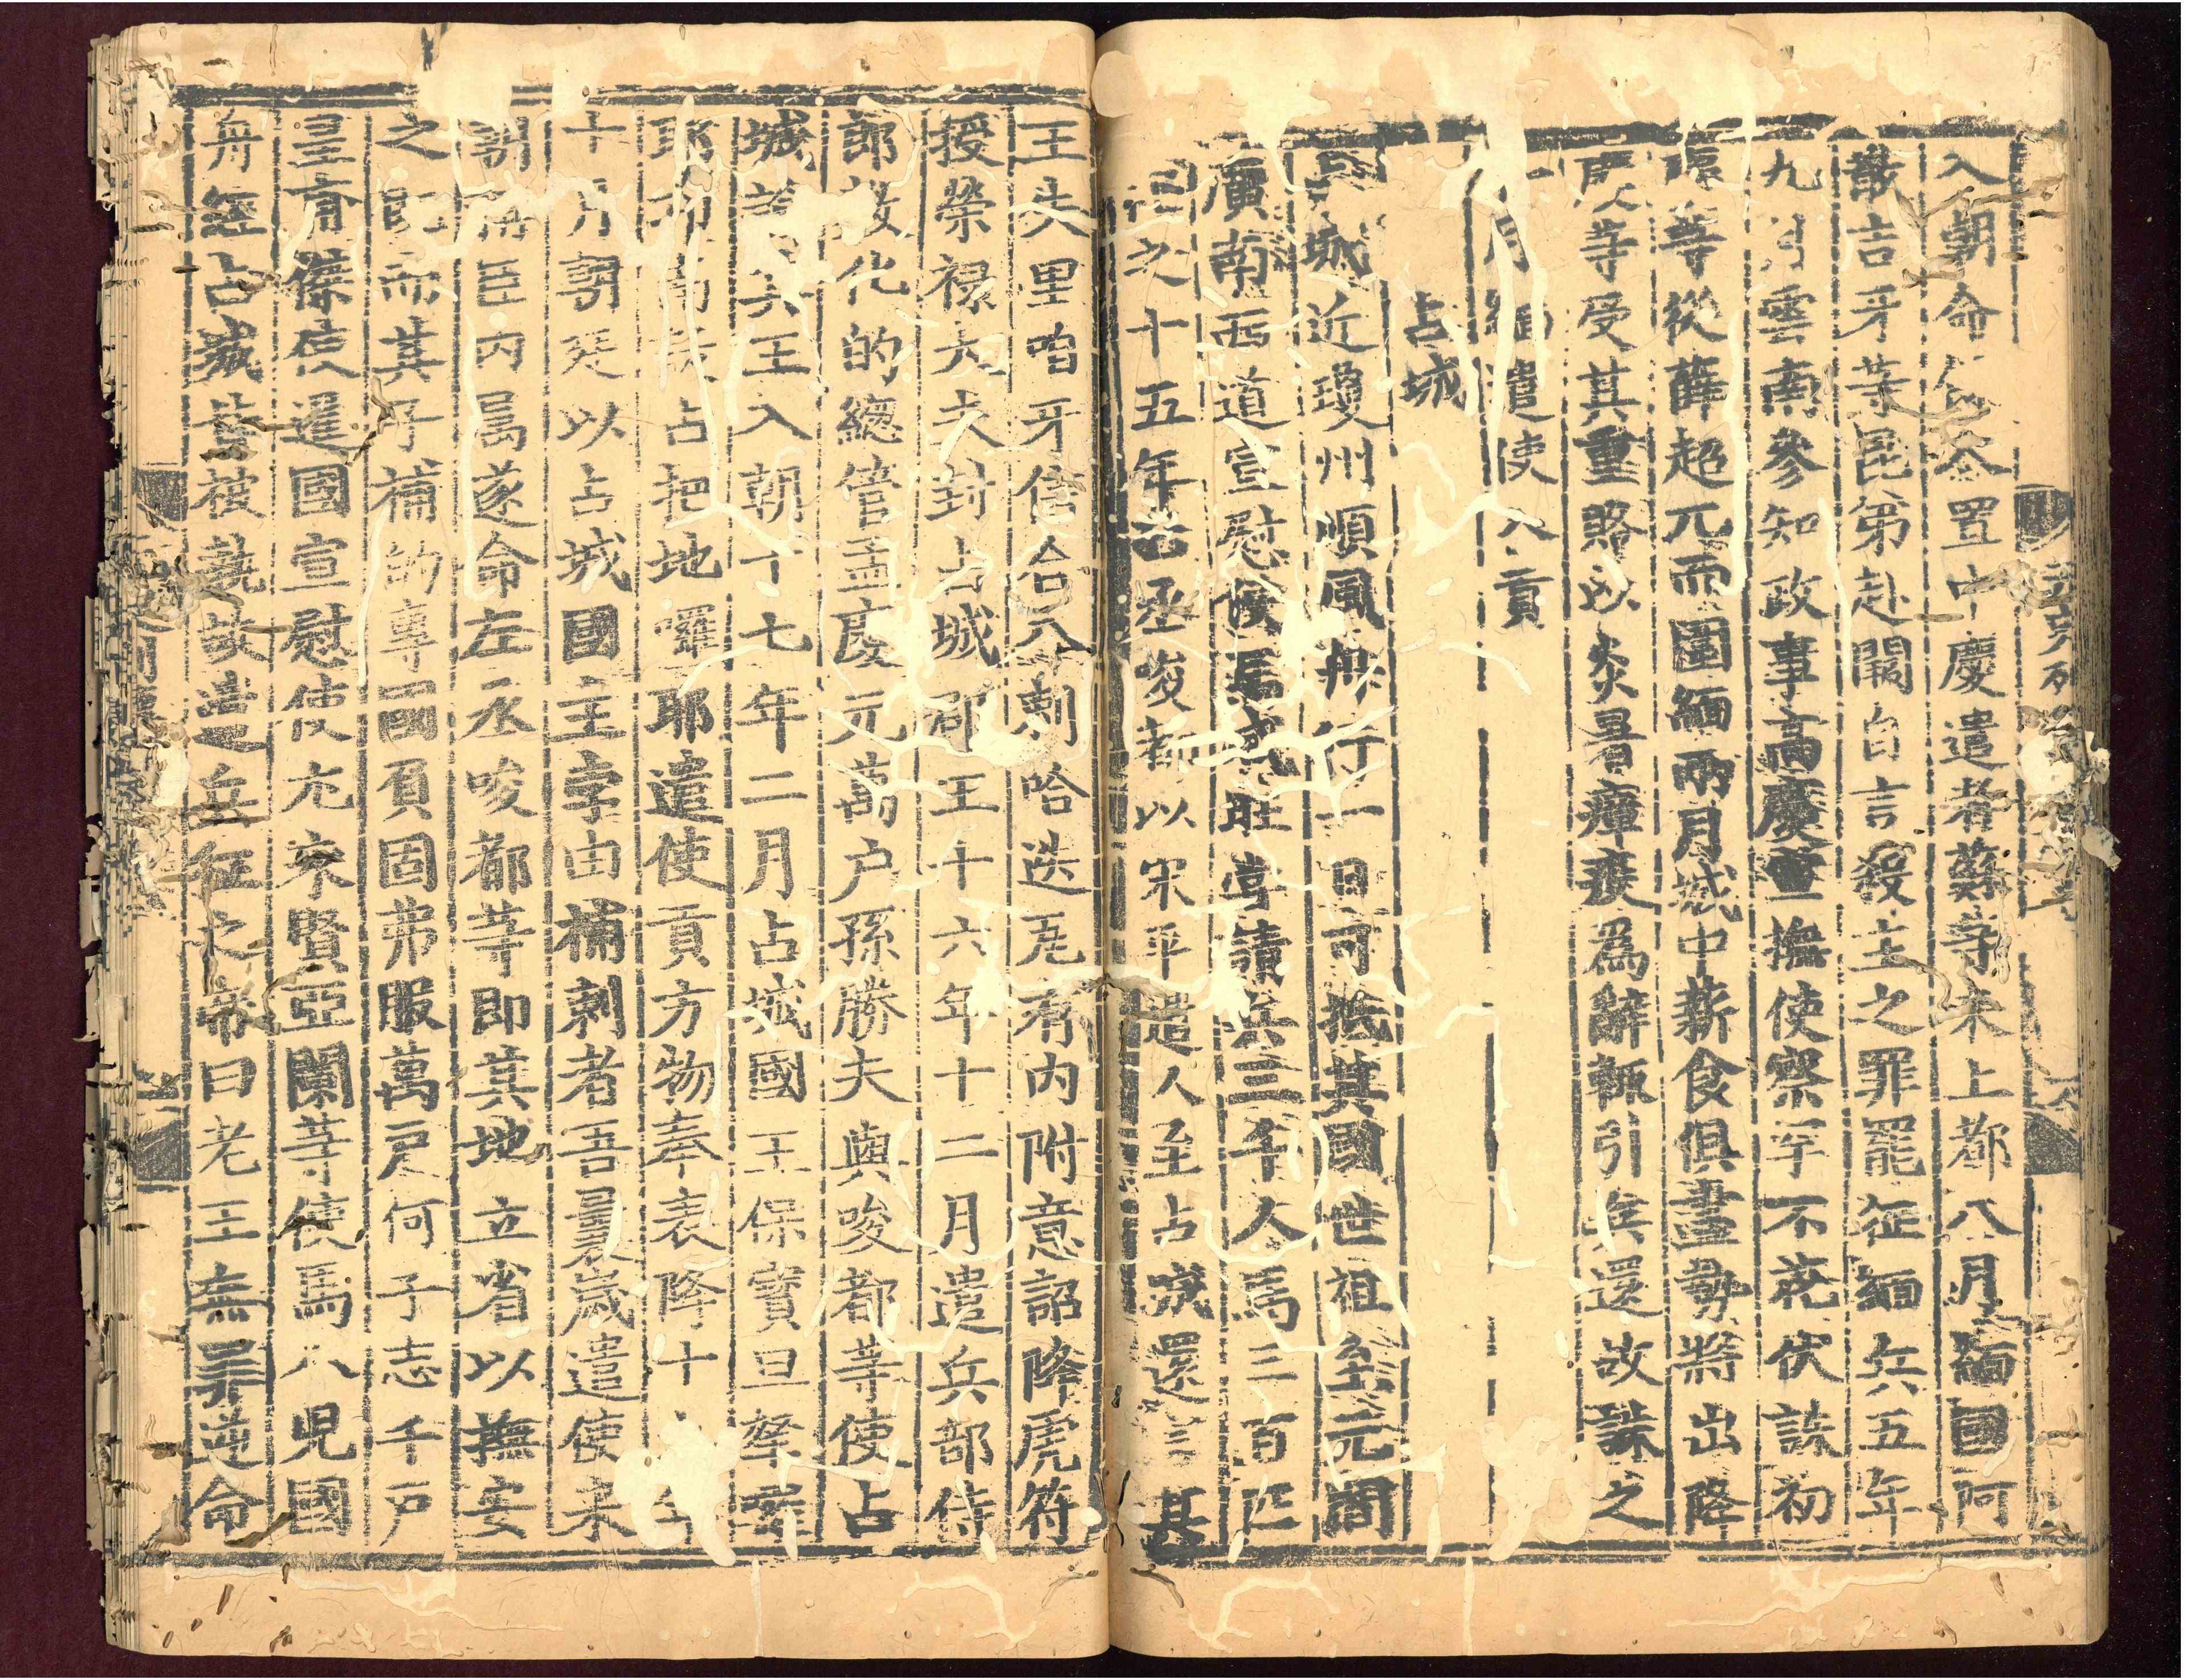 入朝命餘置中慶遣者蘇等來上都八月緬國阿
散吉牙等昆弟赴闕自言殺主之罪罷征緬兵五年
九月雲南參知政事高慶宣撫使察罕不花伏誅初
慶等從薛超兀而圍緬兩月城中薪食俱盡勢將出降
慶等受其重賂以炎暑瘴疫爲辭輒引兵還故誅之
十月緬遣使入貢
占城
占城近瓊州順風舟行一日可抵其國世祖至元間
廣南西道宣慰使馬成旺嘗請兵三千人馬三百匹
征之十五年右丞唆都以宋平遣人至占城還言其
王失里咱牙信合八剌哈迭瓦有内附意詔降虎符
授榮祿大夫封占城郡王十六年十二月遣兵部侍
郎教化的總管孟慶元萬户孫勝夫與唆都等使占
城諭其王入朝十七年二月占城國王保寶旦拏囉
耶邛南 占把地囉耶遣使貢方物奉表降十九年
十月朝廷以占城國主孛由補剌者吾曩歲遣使來
朝稱臣内屬遂命左丞唆都等即其地立省以撫安
之既而其子補的專國負固弗服萬户何子志千户
皇甫傑使暹國宣慰使尤永賢亞闌等使馬八兒國
舟經占城皆被執故遣兵征之帝曰老王無罪逆命